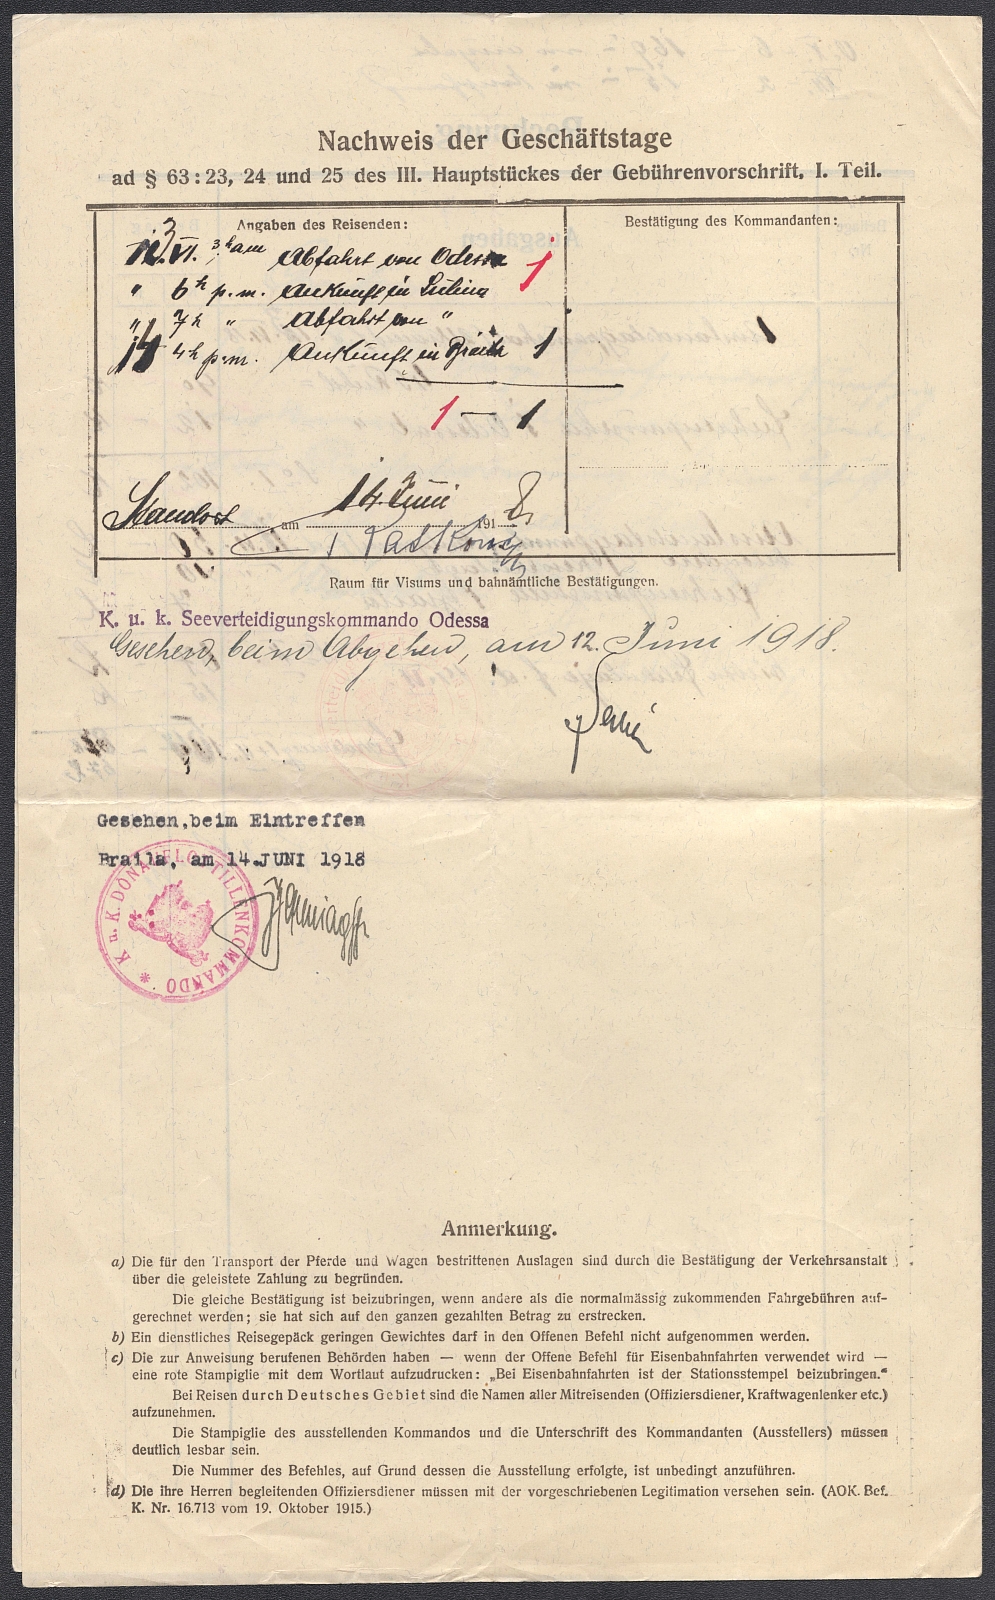 Nachweis der Geschäftstage
ad § 63 : 23, 24 und 25 des III. Hauptstückes der Gebührenvorschrift, I. Teil.
Angaben des Reisenden:
Bestätigung des Kommandanten:
VI. 3h am Abfahrt von Odessa 1
" 6h p.m. Ankunft in Sulina
" 7h " Abfahrt von "
14 4h p.m. Ankunft in Braila 1
1
1 — 1
Standort am 14. Juni 1918
Raum für Visums und bahnämtliche Bestätigungen.
K. u. k. Seeverteidigungskommando Odessa
Gesehen, beim Abgehen, am 12. Juni 1918.
Gesehen, beim Eintreffen
Braila, am 14. JUNI 1918
K. u. K. DONAUFLOTTILLENKOMMANDO *
Anmerkung.
a) Die für den Transport der Pferde und Wagen bestrittenen Auslagen sind durch die Bestätigung der Verkehrsanstalt
über die geleistete Zahlung zu begründen.
Die gleiche Bestätigung ist beizubringen, wenn andere als die normalmässig zukommenden Fahrgebühren auf-
gerechnet werden; sie hat sich auf den ganzen gezahlten Betrag zu erstrecken.
b) Ein dienstliches Reisegepäck geringen Gewichtes darf in den Offenen Befehl nicht aufgenommen werden.
c) Die zur Anweisung berufenen Behörden haben — wenn der Offene Befehl für Eisenbahnfahrten verwendet wird —
eine rote Stampiglie mit dem Wortlaut aufzudrucken: „Bei Eisenbahnfahrten ist der Stationsstempel beizubringen.“
Bei Reisen durch Deutsches Gebiet sind die Namen aller Mitreisenden (Offiziersdiener, Kraftwagenlenker etc.)
aufzunehmen.
Die Stampiglie des ausstellenden Kommandos und die Unterschrift des Kommandanten (Ausstellers) müssen
deutlich lesbar sein.
Die Nummer des Befehles, auf Grund dessen die Ausstellung erfolgte, ist unbedingt anzuführen.
d) Die ihre Herren begleitenden Offiziersdiener müssen mit der vorgeschriebenen Legitimation versehen sein. (AOK. Bef.
K. Nr. 16.713 vom 19. Oktober 1915.)